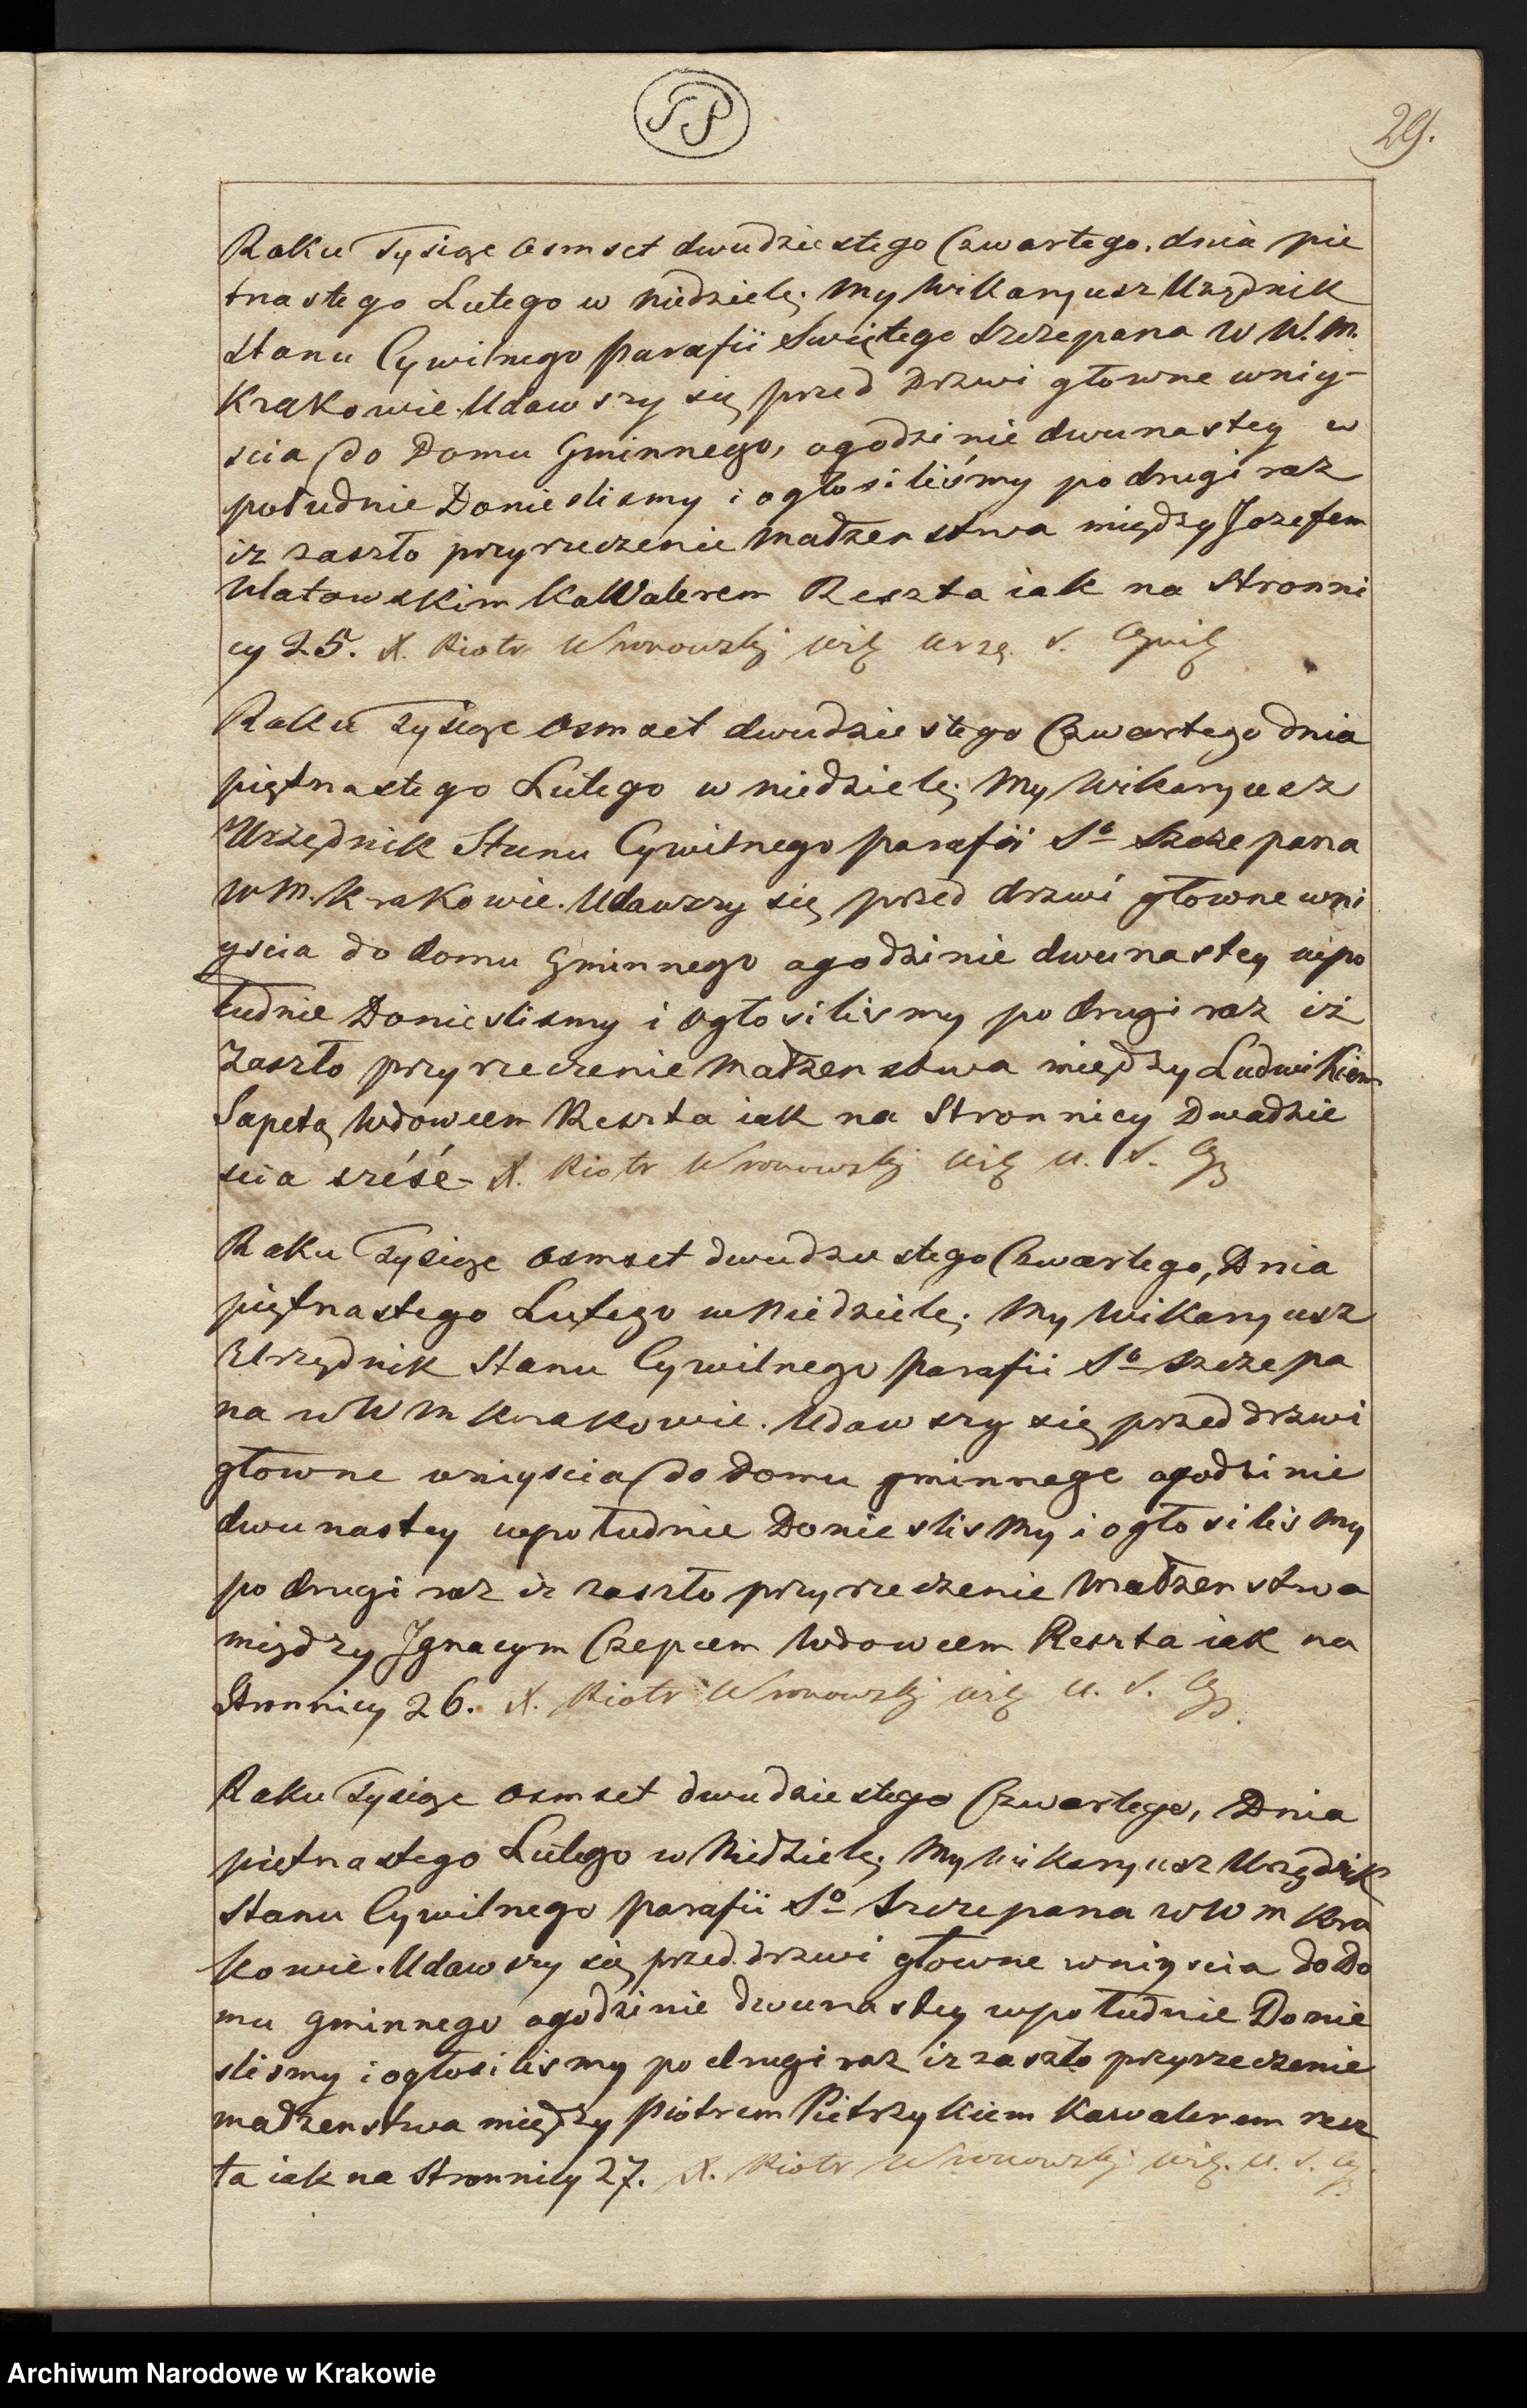 SP
29.
Roku Tysiąc osmset dwudziestego Czwartego, dnia pie
tnastego Lutego w niedzielę; My Wikaryusz Urzędnik
Stanu Cywilnego parafii Swiętego Szczepana w W. M.
Krakowie. Udawszy się przed Drzwi głowne wniy-
scia do Domu Gminnego, ogodzinie dwunastey w
południe Doniesliśmy i ogłosiliśmy po drugi raz
iz zaszło przyrzeczenie Małzenstwa między Jozefem
Watowskim KaWalerem Reszta iak na Stronni
cy 25. X. Piotr Wronowski Urzę. S. Cywil
Roku Tysiąc osmset dwudziestego Czwartego dnia
piętnastego Lutego w niedzielę; My Wikaryusz
Urzędnik Stanu Cywilnego parafii So Szczepana
W M. Krakowie. Udawszy się przed drzwi głowne wni
yscia do domu Gminnego ogodzinie dwunastey wpo
łudnie Donieslismy i ogłosilismy po drugi raz iż
zaszło przyrzeczenie Małzenstwa między Ludwikiem
Sapetą Wdowcem Reszta iak na Stronnicy Dwadzie
scia sześć - X. Piotr Wronowski U. S. Cy
Roku Tysiąc osmset dwudziestego Czwartego, Dnia
piętnastego Lutego w Niedzielę; My Wikaryusz
Urzędnik Stanu Cywilnego parafii So Szczepa
na w W M Krakowie. Udawszy się przed drzwi
głowne wniyscia do Domu gminnego ogodzinie
dwunastey wpołudnie Donieslismy i ogłosilismy
po drugi raz iz zaszło przyrzeczenie Małzenstwa
między Jgnacym Czepcem Wdowcem Reszta iak na
Stronnicy 26. X. Piotr Wronowski U. S. Cy.
Roku Tysiąc osmset dwudziestego Czwartego, Dnia
pietnastego Lutego w Niedzielę; My Wikaryusz Urzędnik
Stanu Cywilnego parafii So Szczepana w W M Kra
kowie. Udawszy się przed drzwi głowne wniyscia do Do
mu gminnego ogodzinie dwunastey wpołudnie Donie
slismy i ogłosilismy po drugi raz iz zaszło przyrzeczenie
małzenstwa między Piotrem Pietrzykiem Kawalerem resz
ta iak na Stronnicy 27. X. Piotr Wronowski U. S. Cy.
Archiwum Narodowe w Krakowie